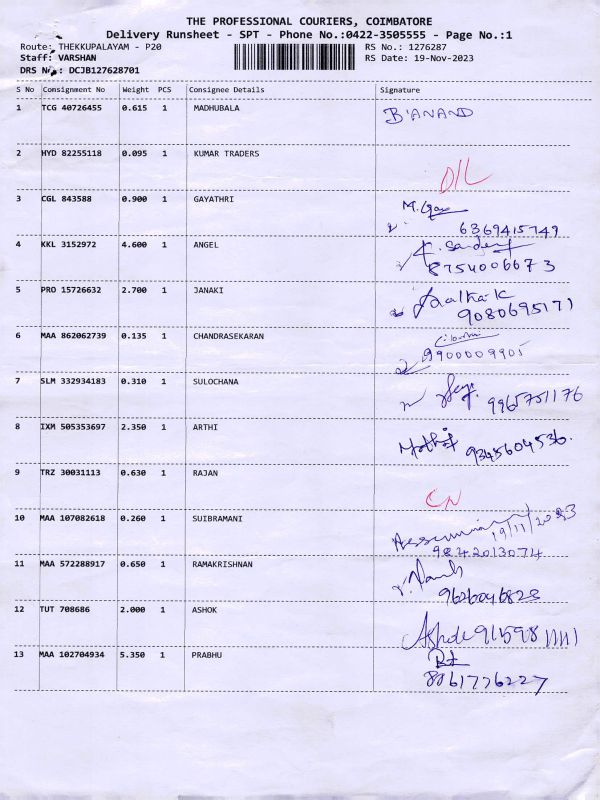 THE PROFESSIONAL COURIERS, COIMBATORE
Delivery Runsheet - SPT - Phone No.:0422-3505555 - Page No.:1
Route: THEKKUPALAYAM - P20
RS No.: 1276287
Staff: VARSHAN
RS Date: 19-Nov-2023
DRS No.: DCJB127628701
S No Consignment No Weight PCS Consignee Details Signature
1 TCG 40726455 0.615 1 MADHUBALA B'ANAND
2 HYD 82255118 0.095 1 KUMAR TRADERS
D/L
3 CGL 843588 0.900 1 GAYATHRI
6369415749
4 KKL 3152972 4.600 1 ANGEL
8754006673
5 PRO 15726632 2.700 1 JANAKI
9080695171
6 MAA 862062739 0.135 1 CHANDRASEKARAN
9900009905
7 SLM 332934183 0.310 1 SULOCHANA
9965751176
8 IXM 505353697 2.350 1 ARTHI
9345604536.
9 TRZ 30031113 0.630 1 RAJAN
CN
10 MAA 107082618 0.260 1 SUIBRAMANI
19/11/2023
9842013074
11 MAA 572288917 0.650 1 RAMAKRISHNAN
9626046828
12 TUT 708686 2.000 1 ASHOK
13 MAA 102704934 5.350 1 PRABHU
8061776227